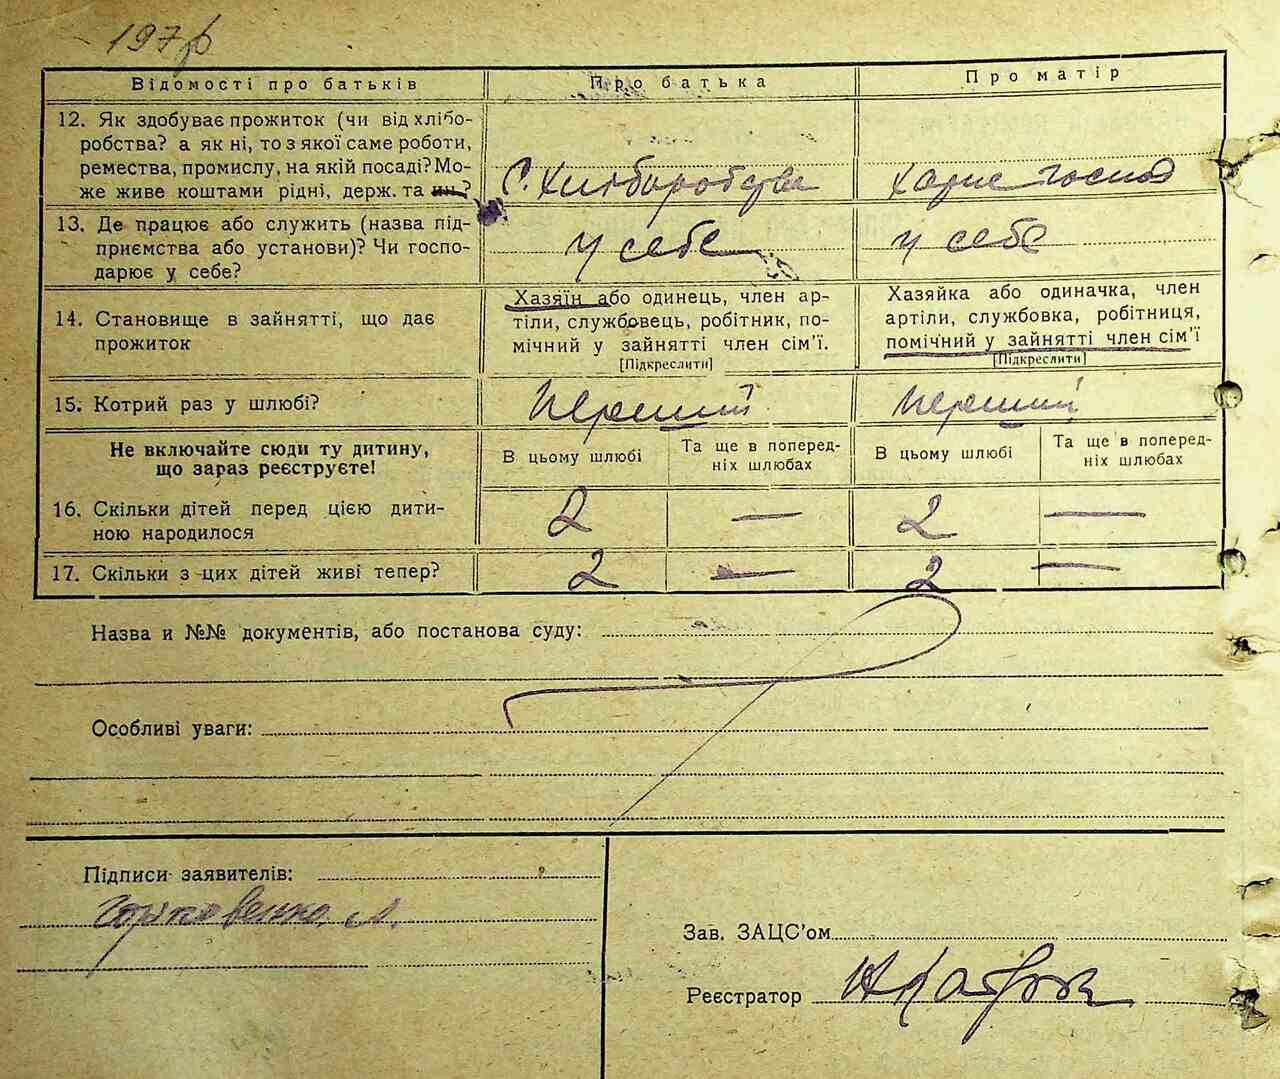 197
Відомості про батьків
Про батька
Про матір
12. Як здобуває прожиток (чи від хлібо-
робства? а як ні, то з якої саме роботи,
ремества, промислу, на якій посаді? Мо-
же живе коштами рідні, держ. та ин.?
С. Хлібборобства
13. Де працює або служить (назва під-
приємства або установи)? Чи госпо-
дарює у себе?
у себе
у себе
14. Становище в зайнятті, що дає
прожиток
Хазяїн або одинець, член ар-
тіли, службовець, робітник, по-
мічний у зайнятті член сім'ї.
[Підкреслити]
Хазяйка або одиначка, член
артіли, службовка, робітниця,
помічний у зайнятті член сім'ї
[Підкреслити]
15. Котрий раз у шлюбі?
перший
перший
Не включайте сюди ту дитину,
що зараз реєструєте!
В цьому шлюбі
Та ще в поперед-
ніх шлюбах
В цьому шлюбі
Та ще в поперед-
ніх шлюбах
16. Скільки дітей перед цією дити-
ною народилося
2 — 2 —
17. Скільки з цих дітей живі тепер?
2 — 2 —
Назва и №№ документів, або постанова суду:
Особливі уваги:
Підписи заявителів:
Зав. ЗАЦС'ом
Реєстратор